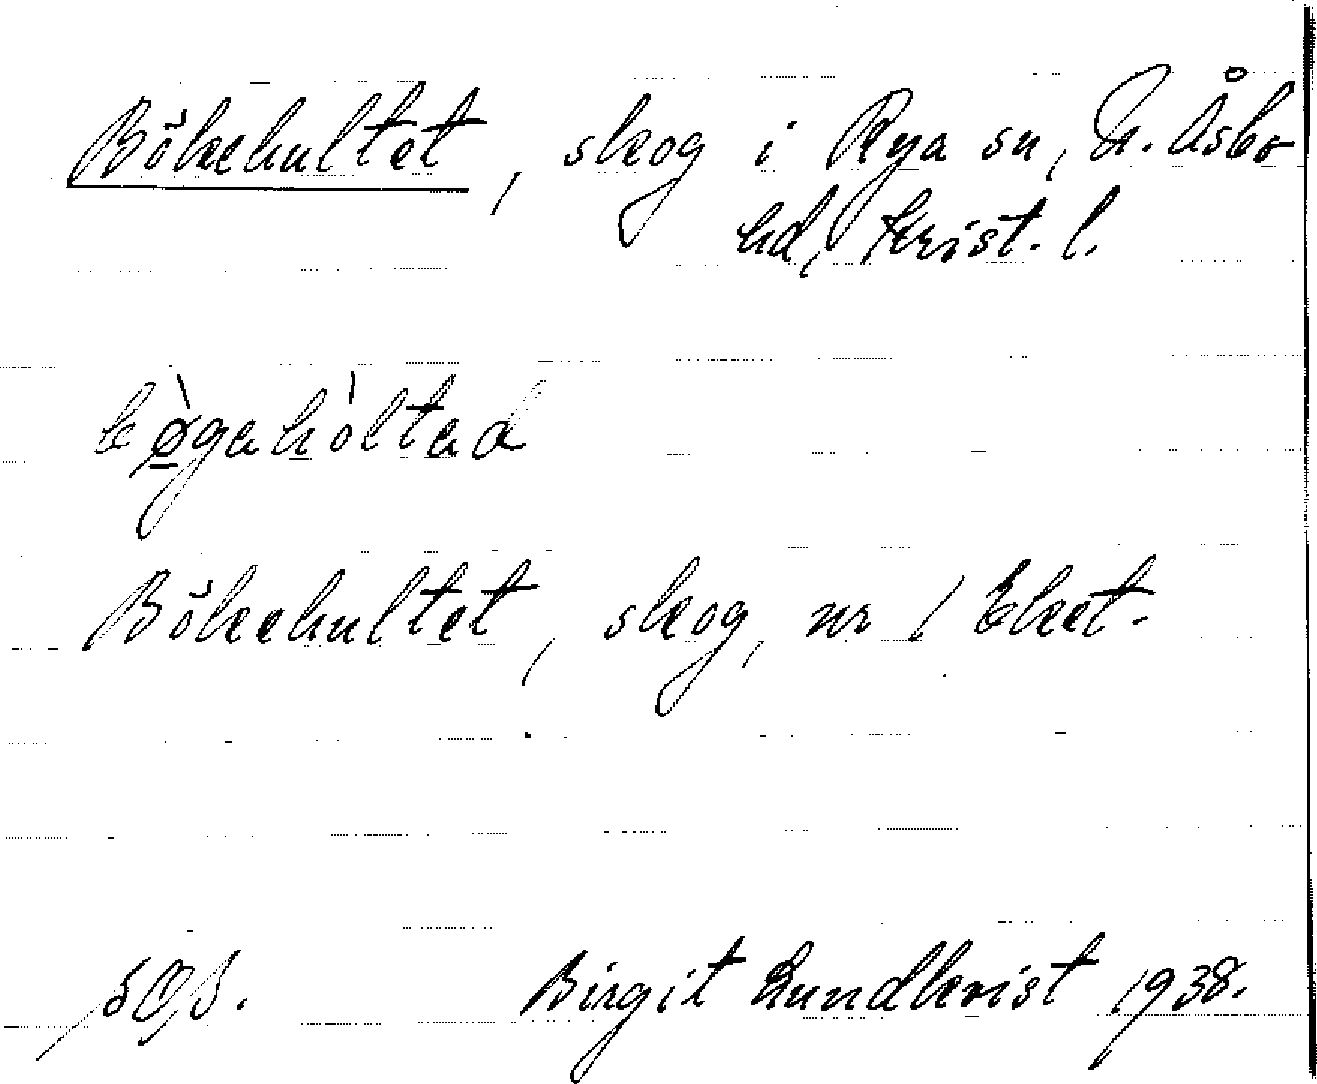 Bökehultet, skog i Rya sn, N. Åsbo
hd, Krist. l.
bø̀gahòltad
Bökehultet, skog, nr 1 Eket.
Birgit Lundkvist 1938.